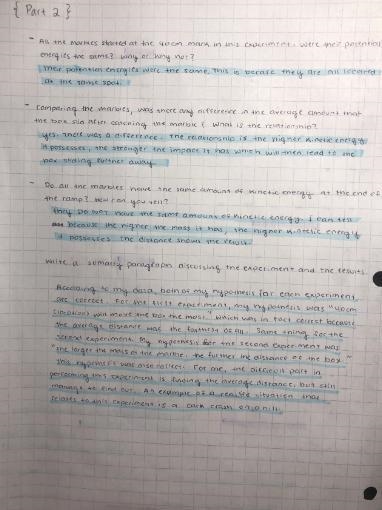 { Part 2 }
- All the marbles started at the 40cm mark in this experiment. Were their potential
energies the same? Why or why not?
Their potential energies were the same. This is because they are all located
at the same spot.
- Comparing the marbles, was there any difference in the average amount that
the box slid after catching the marble? What is the relationship?
Yes, there was a difference. The relationship is the higher kinetic energy
it possesses, the stronger the impact it has which will then lead to the
box sliding further away.
- Do all the marbles have the same amount of kinetic energy at the end of
the ramp? How can you tell?
They do not have the same amount of kinetic energy. I can tell
because the higher the mass it has, the higher kinetic energy
it possesses. The distance shows the result.
Write a summary paragraph discussing the experiment and the results.
According to my data, both of my hypothesis for each experiment
are correct. For the first experiment, my hypothesis was "40cm
would move the box the most," which was in fact correct because
the average distance was the farthest of all. Same thing for the
second experiment. My hypothesis for the second experiment was
"the larger the mass of the marble, the further the distance of the box"
this hypothesis was also correct. For me, the difficult part in
performing this experiment is finding the average distance, but still
manage to find out. An example of a realistic situation that
relates to this experiment is a car crash